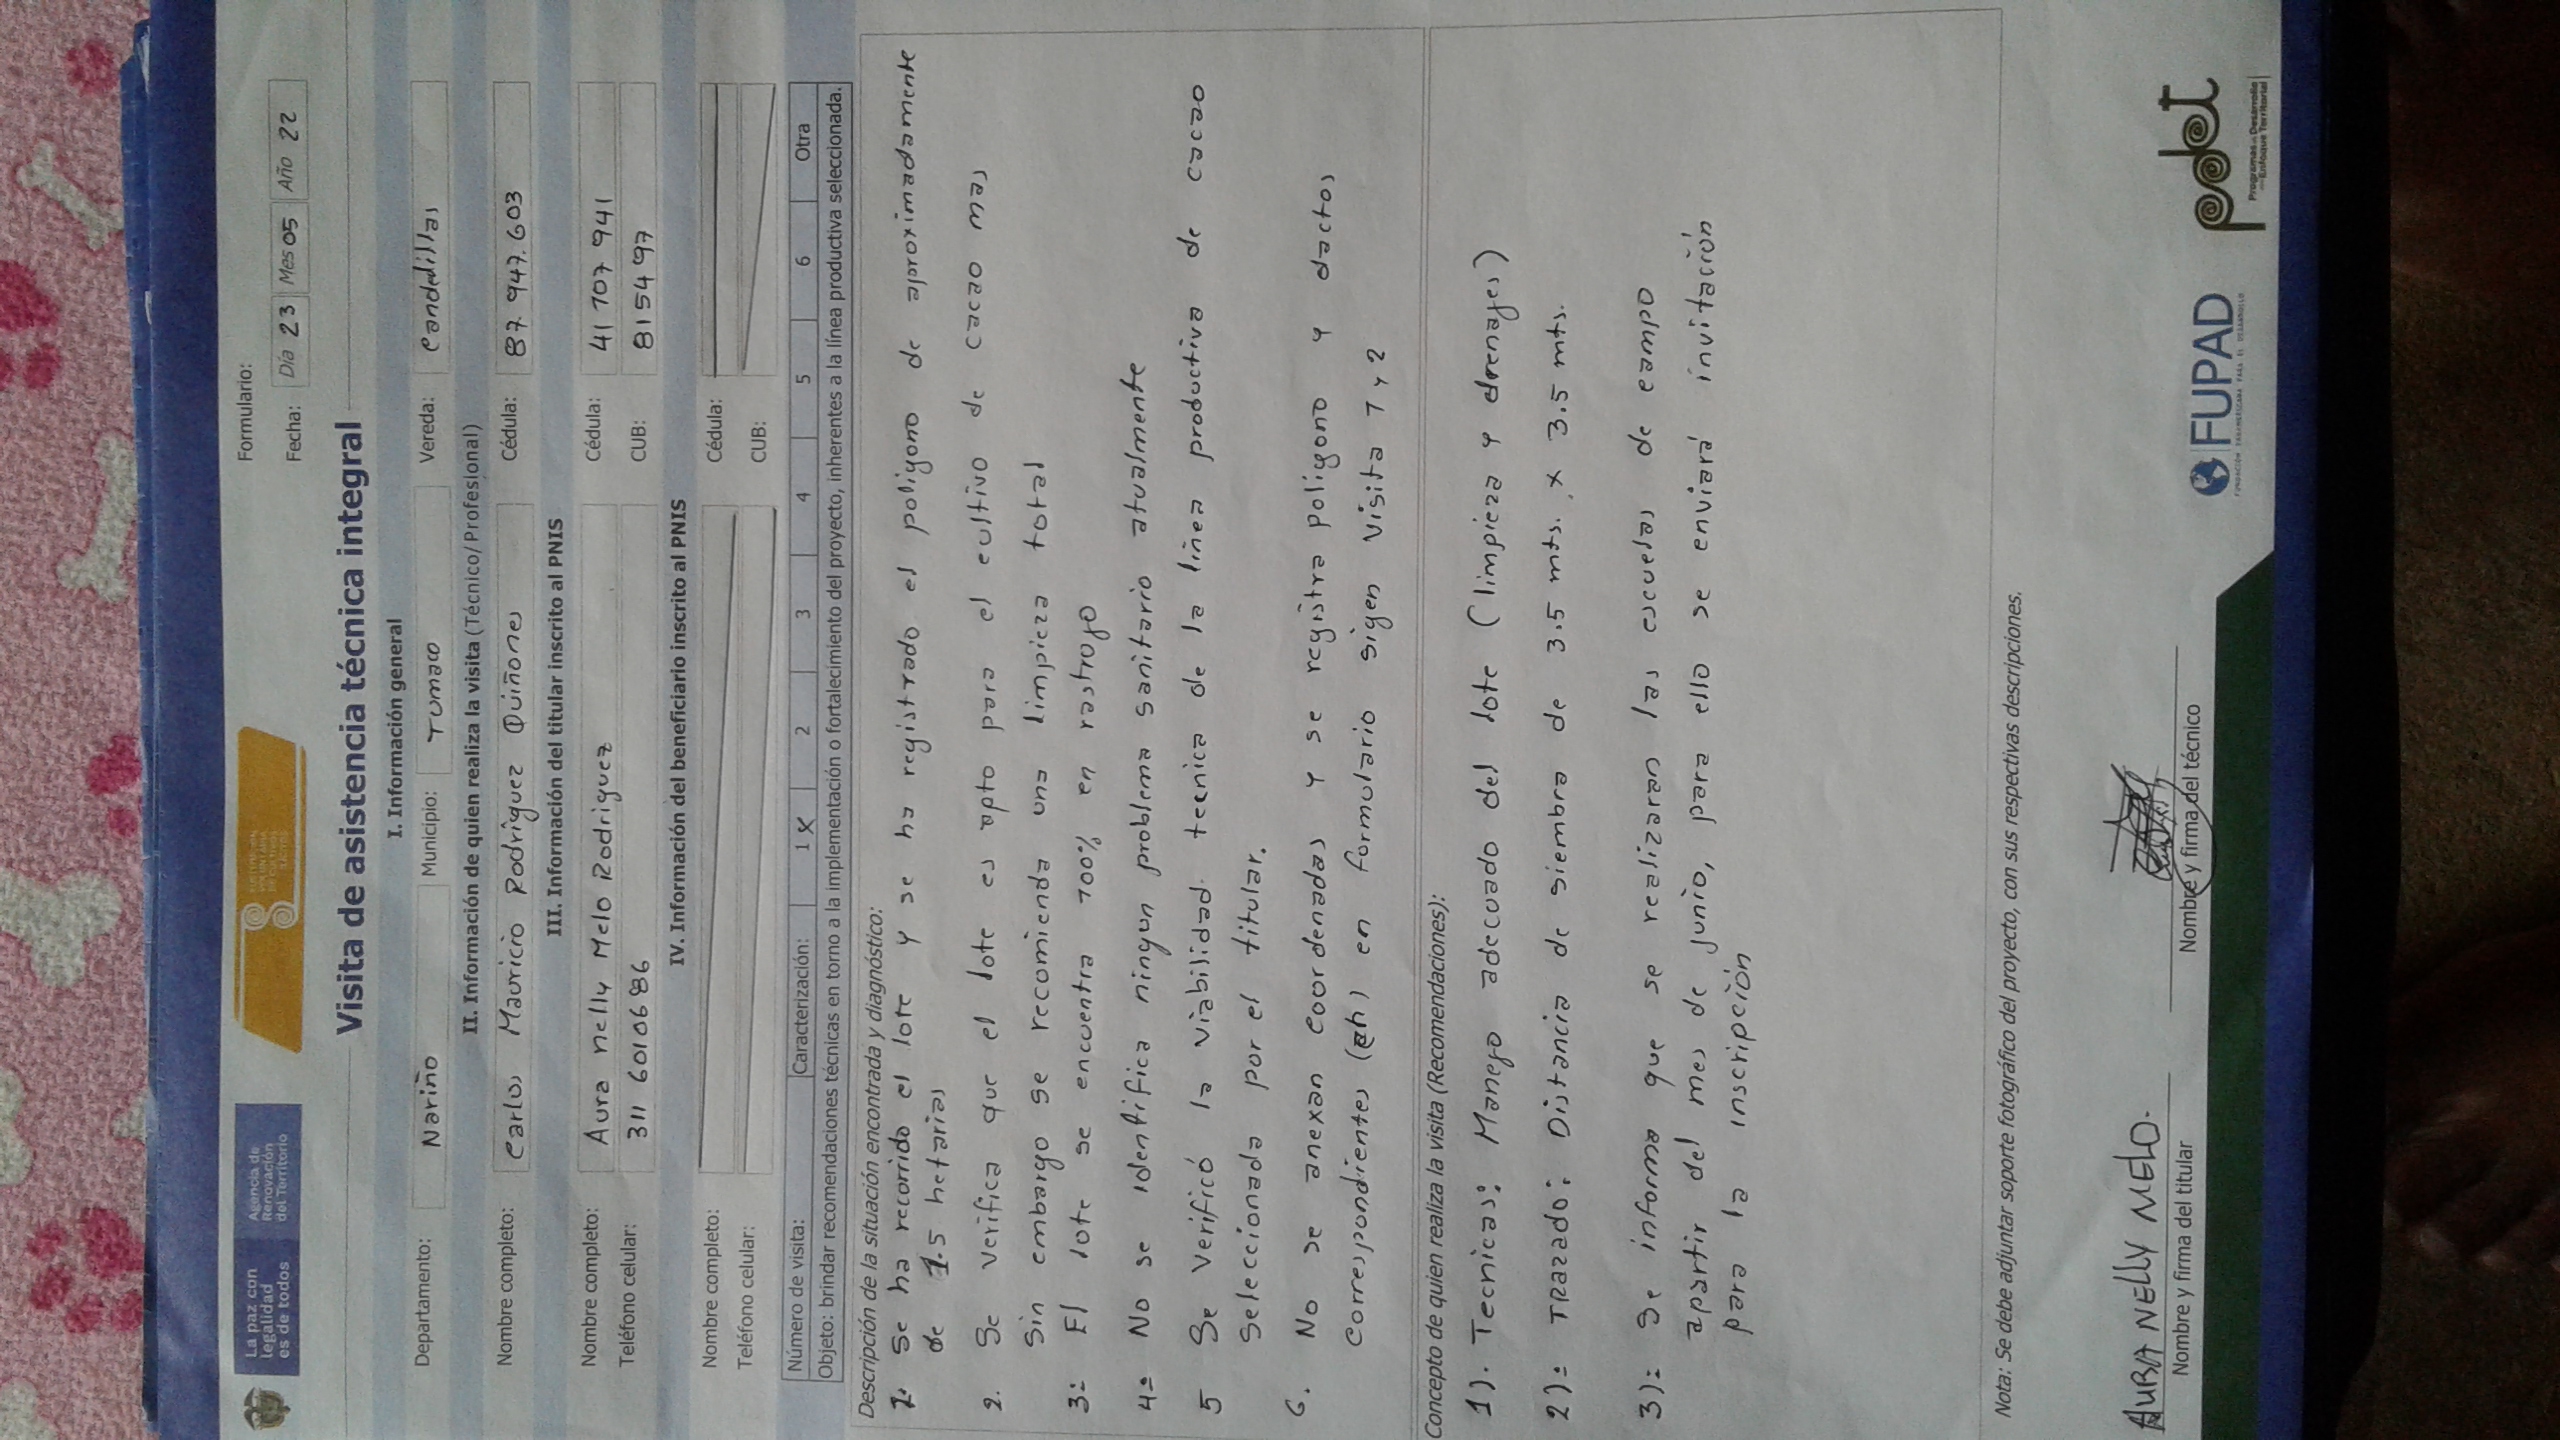 La paz con
legalidad
es de todos
Agencia de
Renovación
del Territorio
SUSTITUCIÓN
VOLUNTARIA
DE CULTIVOS
ILÍCITOS
Formulario:
Fecha: Día 23 Mes 05 Año 22
Visita de asistencia técnica integral
I. Información general
Departamento: Nariño Municipio: Tumaco Vereda: Candelillas
II. Información de quien realiza la visita (Técnico/ Profesional)
Nombre completo: Carlos Mauricio Rodriguez Quiñones Cédula: 87.947.603
III. Información del titular inscrito al PNIS
Nombre completo: Aura nelly Melo Rodriguez Cédula: 41 707 941
Teléfono celular: 311 6010686 CUB: 8154 97
IV. Información del beneficiario inscrito al PNIS
Nombre completo: Cédula:
Teléfono celular: CUB:
Número de visita: Caracterización: 1 X 2 3 4 5 6 Otra
Objeto: brindar recomendaciones técnicas en torno a la implementación o fortalecimiento del proyecto, inherentes a la línea productiva seleccionada.
Descripción de la situación encontrada y diagnóstico:
1. Se ha recorrido el lote y se ha registrado el poligono de aproximadamente
de 1.5 hetarias
2. Se verifica que el lote es apto para el cultivo de cacao mas
Sin embargo se recomienda una limpieza total
3: El lote se encuentra 100% en rastrojo
4= No se identifica ningun problema sanitario atualmente
5 Se verificó la viabilidad tecnica de la linea productiva de cacao
Seleccionada por el titular.
6. No se anexan coordenadas y se registra poligono y dactos
correspondientes (ah) en formulario sigen visita 1 y 2
Concepto de quien realiza la visita (Recomendaciones):
1). Tecnicas: Manejo adecuado del lote (limpieza y drenajes)
2)= TRAZADO: Distancia de siembra de 3.5 mts. x 3.5 mts.
3)= Se informa que se realizaran las escuelas de campo
apartir del mes de junio, para ello se enviará invitación
para la inscripción
Nota: Se debe adjuntar soporte fotográfico del proyecto, con sus respectivas descripciones.
AURA NELLY MELO.
Nombre y firma del titular
Nombre y firma del técnico
FUPAD
FUNDACIÓN PANAMERICANA PARA EL DESARROLLO
pdet
Programas de Desarrollo
con Enfoque Territorial